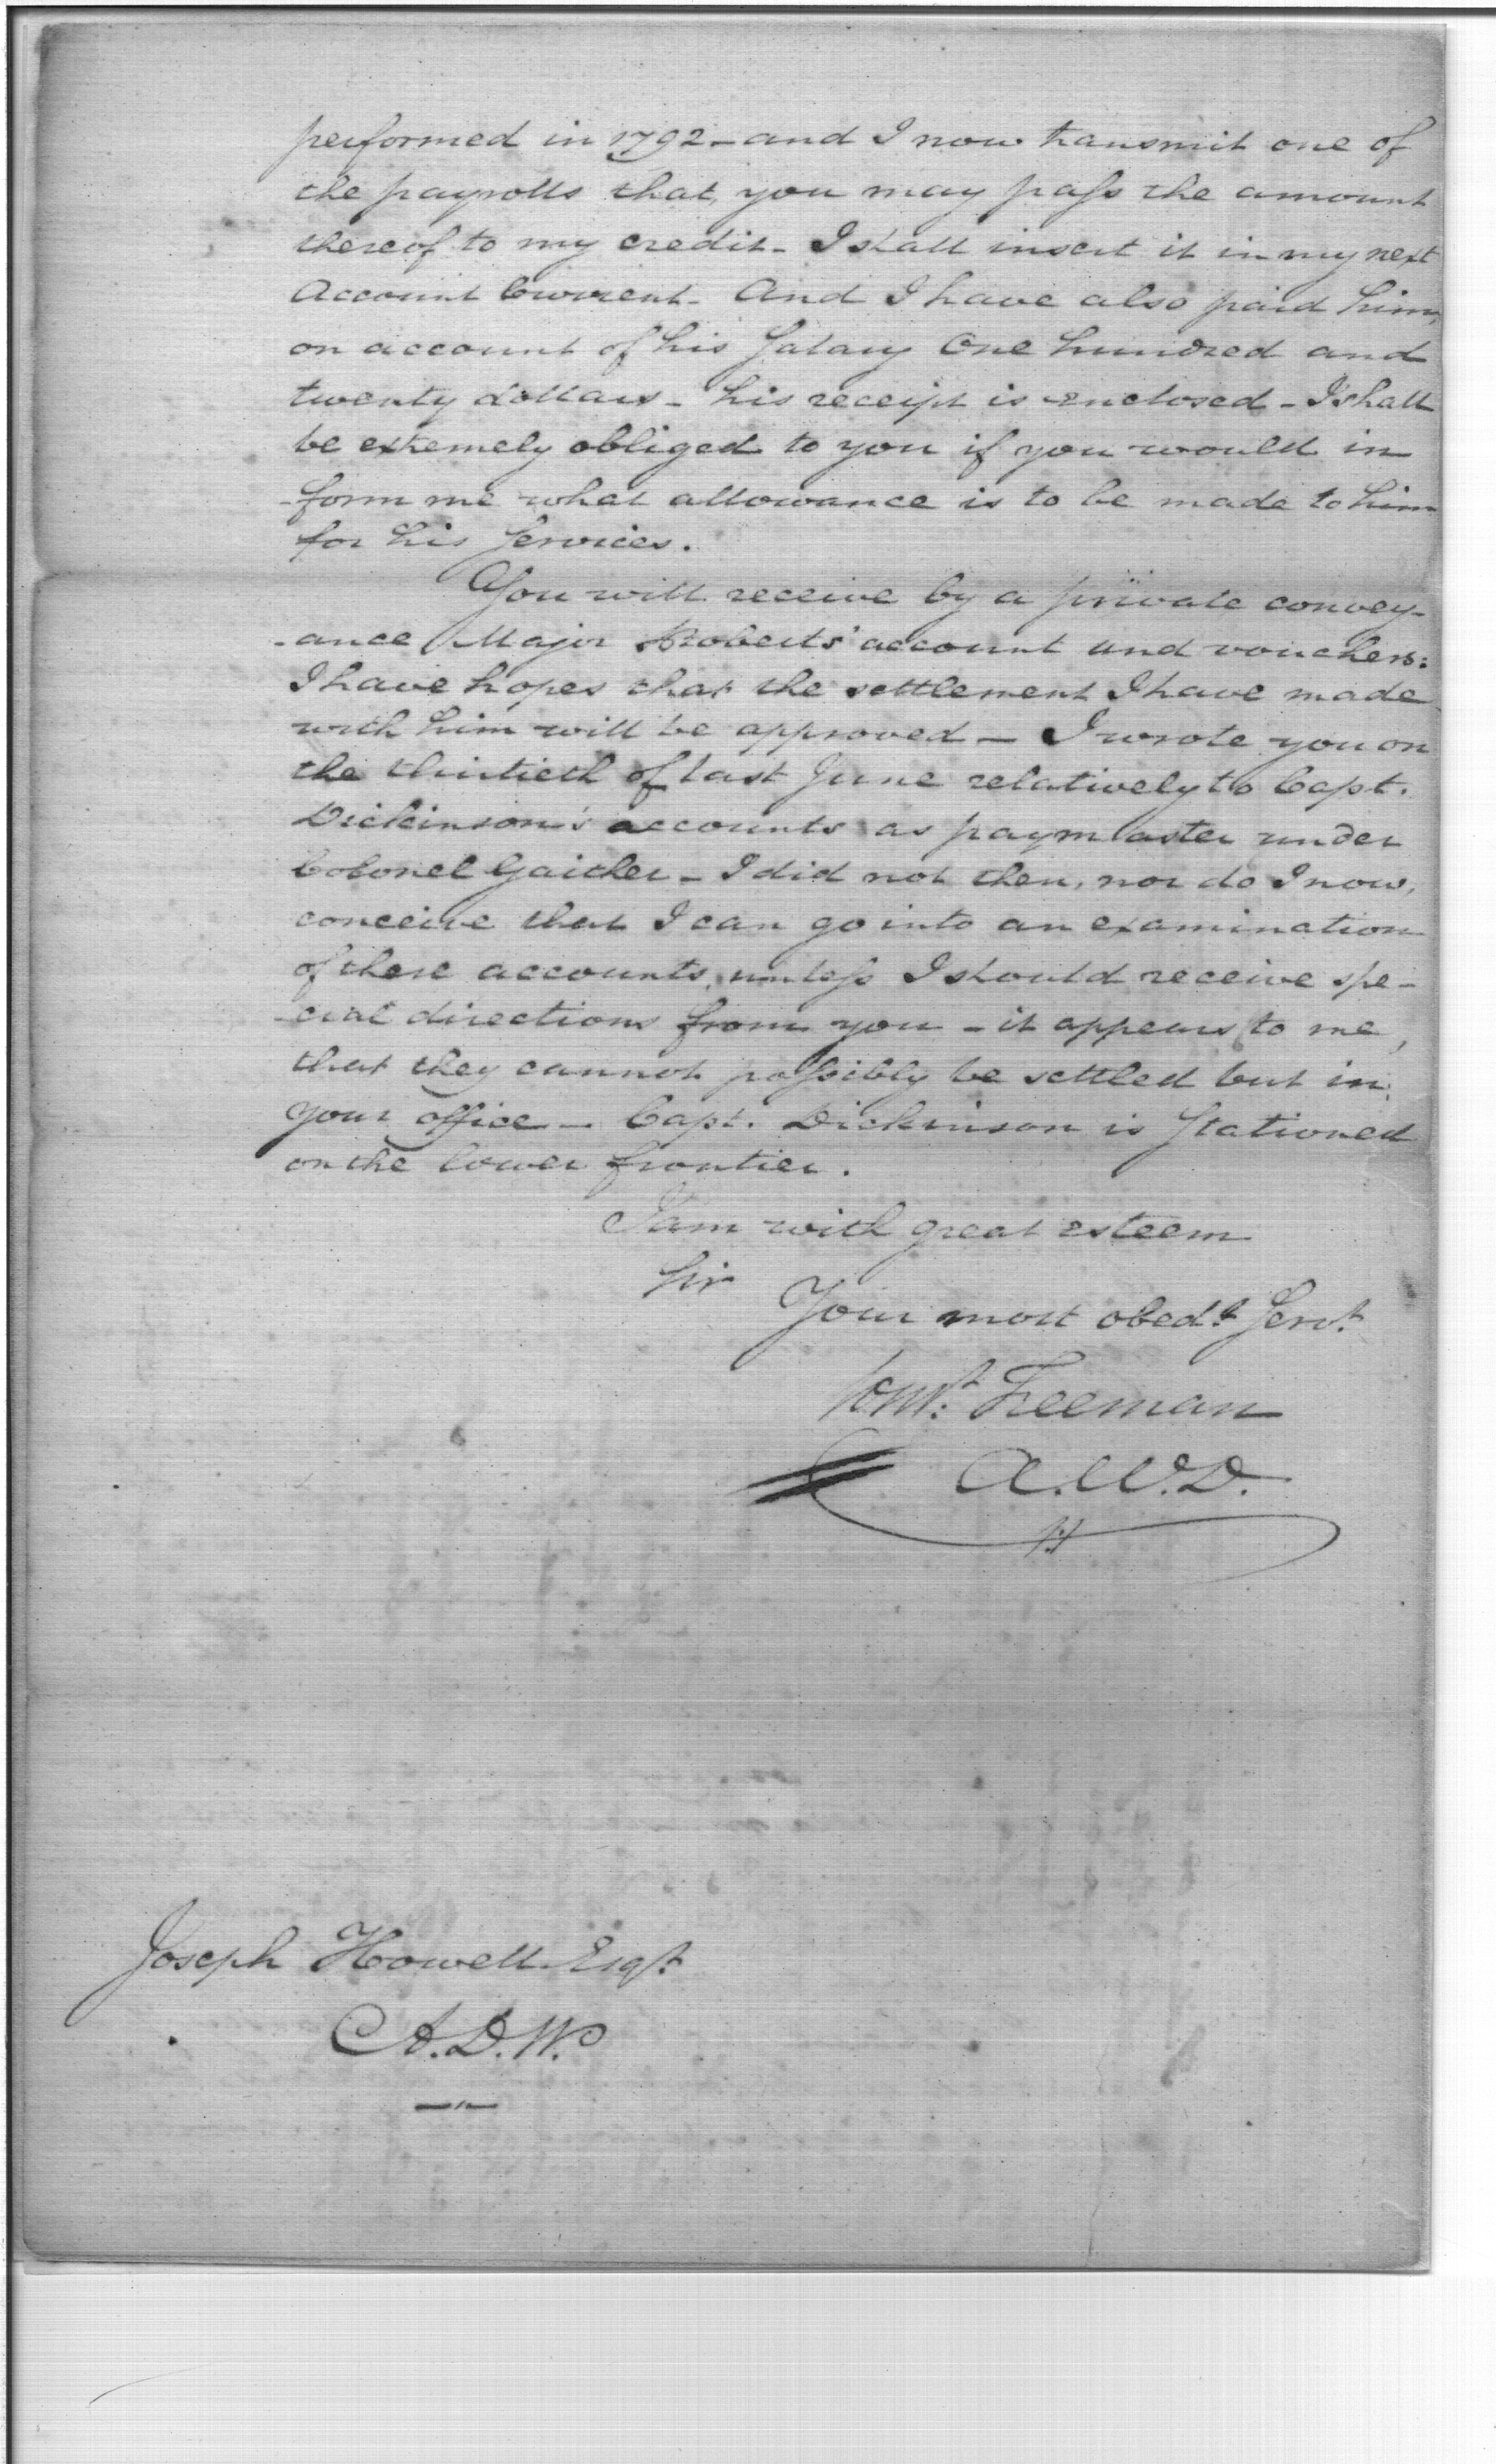 performed in 1792 - and I now transmit one of
the payrolls that, you may pass the amount
thereof to my credit - I shall insert it in my next
Account Current - And I have also paid him,
on account of his Salary One hundred and
twenty dollars - his receipt is enclosed - I shall
be extremely obliged to you if you would in
-form me what allowance is to be made to him
for his Services.
You will receive by a private convey-
-ance Major Roberts' account and vouchers:
I have hopes that the settlement I have made
with him will be approved — I wrote you on
the thirtieth of last June relatively to Capt.
Dickinson's accounts as paymaster under
Colonel Gaither - I did not then, nor do I now,
conceive that I can go into an examination
of these accounts, unless I should receive spe-
-cial directions from you - it appears to me,
that they cannot possibly be settled but in
your office — Capt. Dickinson is Stationed
on the lower frontier.
I am with great esteem
Sir
Your most obedt Servt
Const: Freeman
A.W.D.
Joseph Howell Esqr.
A.D.W.